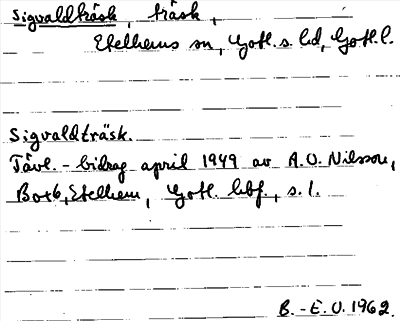 Sigvaldträsk, träsk,
Etelhems sn, Gotl. s. hd, Gotl. l.
Sigvaldträsk.
Tävl.-bidrag april 1949 av A.O. Nilsson,
Botb, Etelhem, Gotl. hbf., s. l.
B.-E. O. 1962.